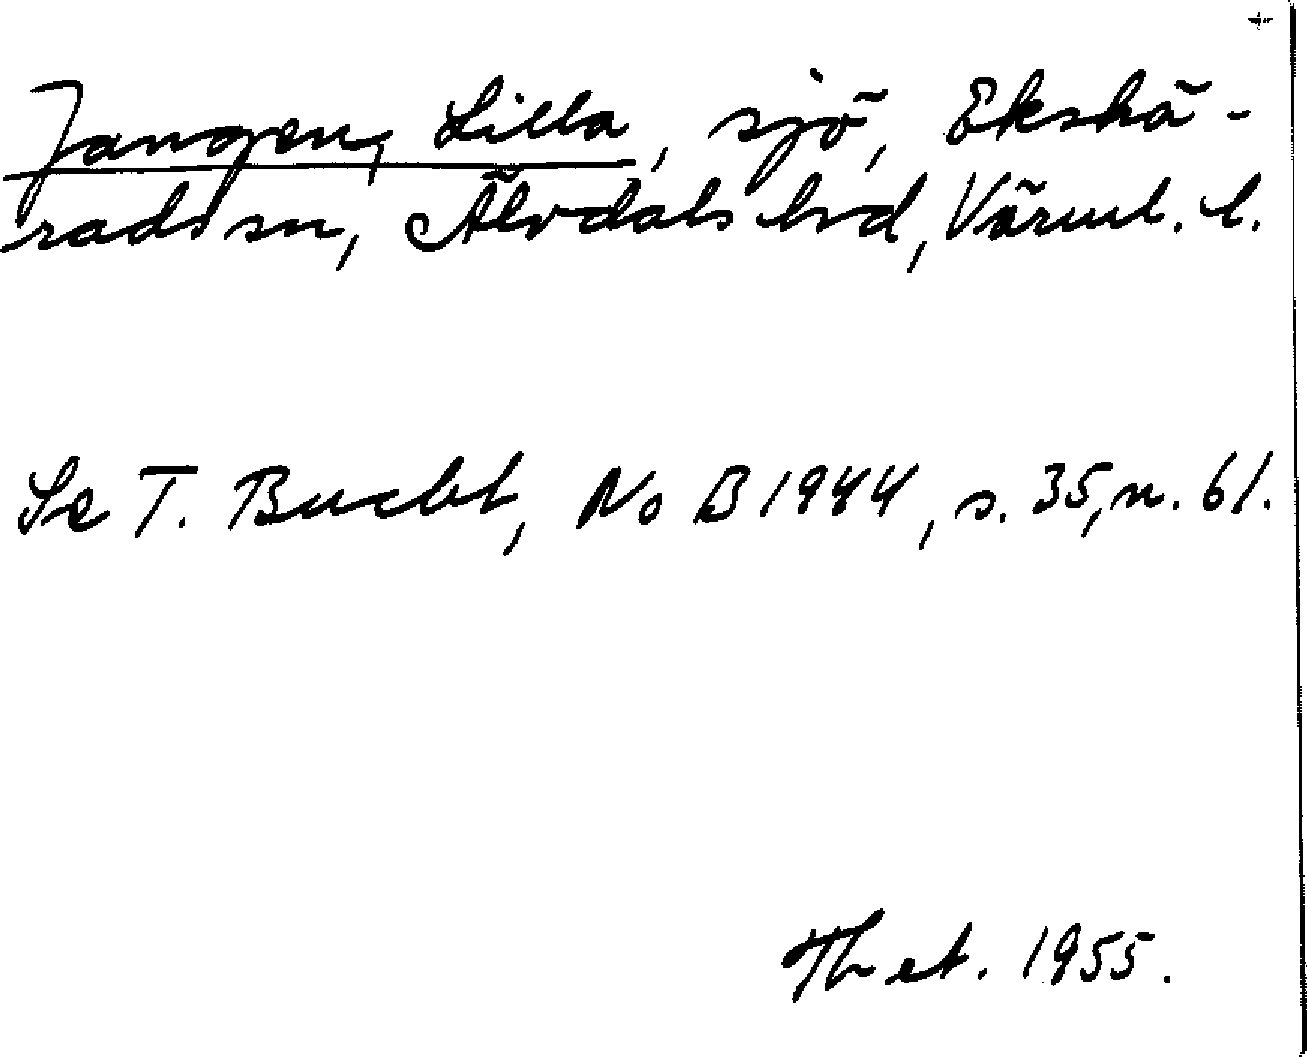 Jangen, Lilla, sjö, Ekshä-
rads sn, Älvdals hd, Värml. l.
Se T. Bucht, NoB 1944, s. 35, n. 61.
Th et. 1955.